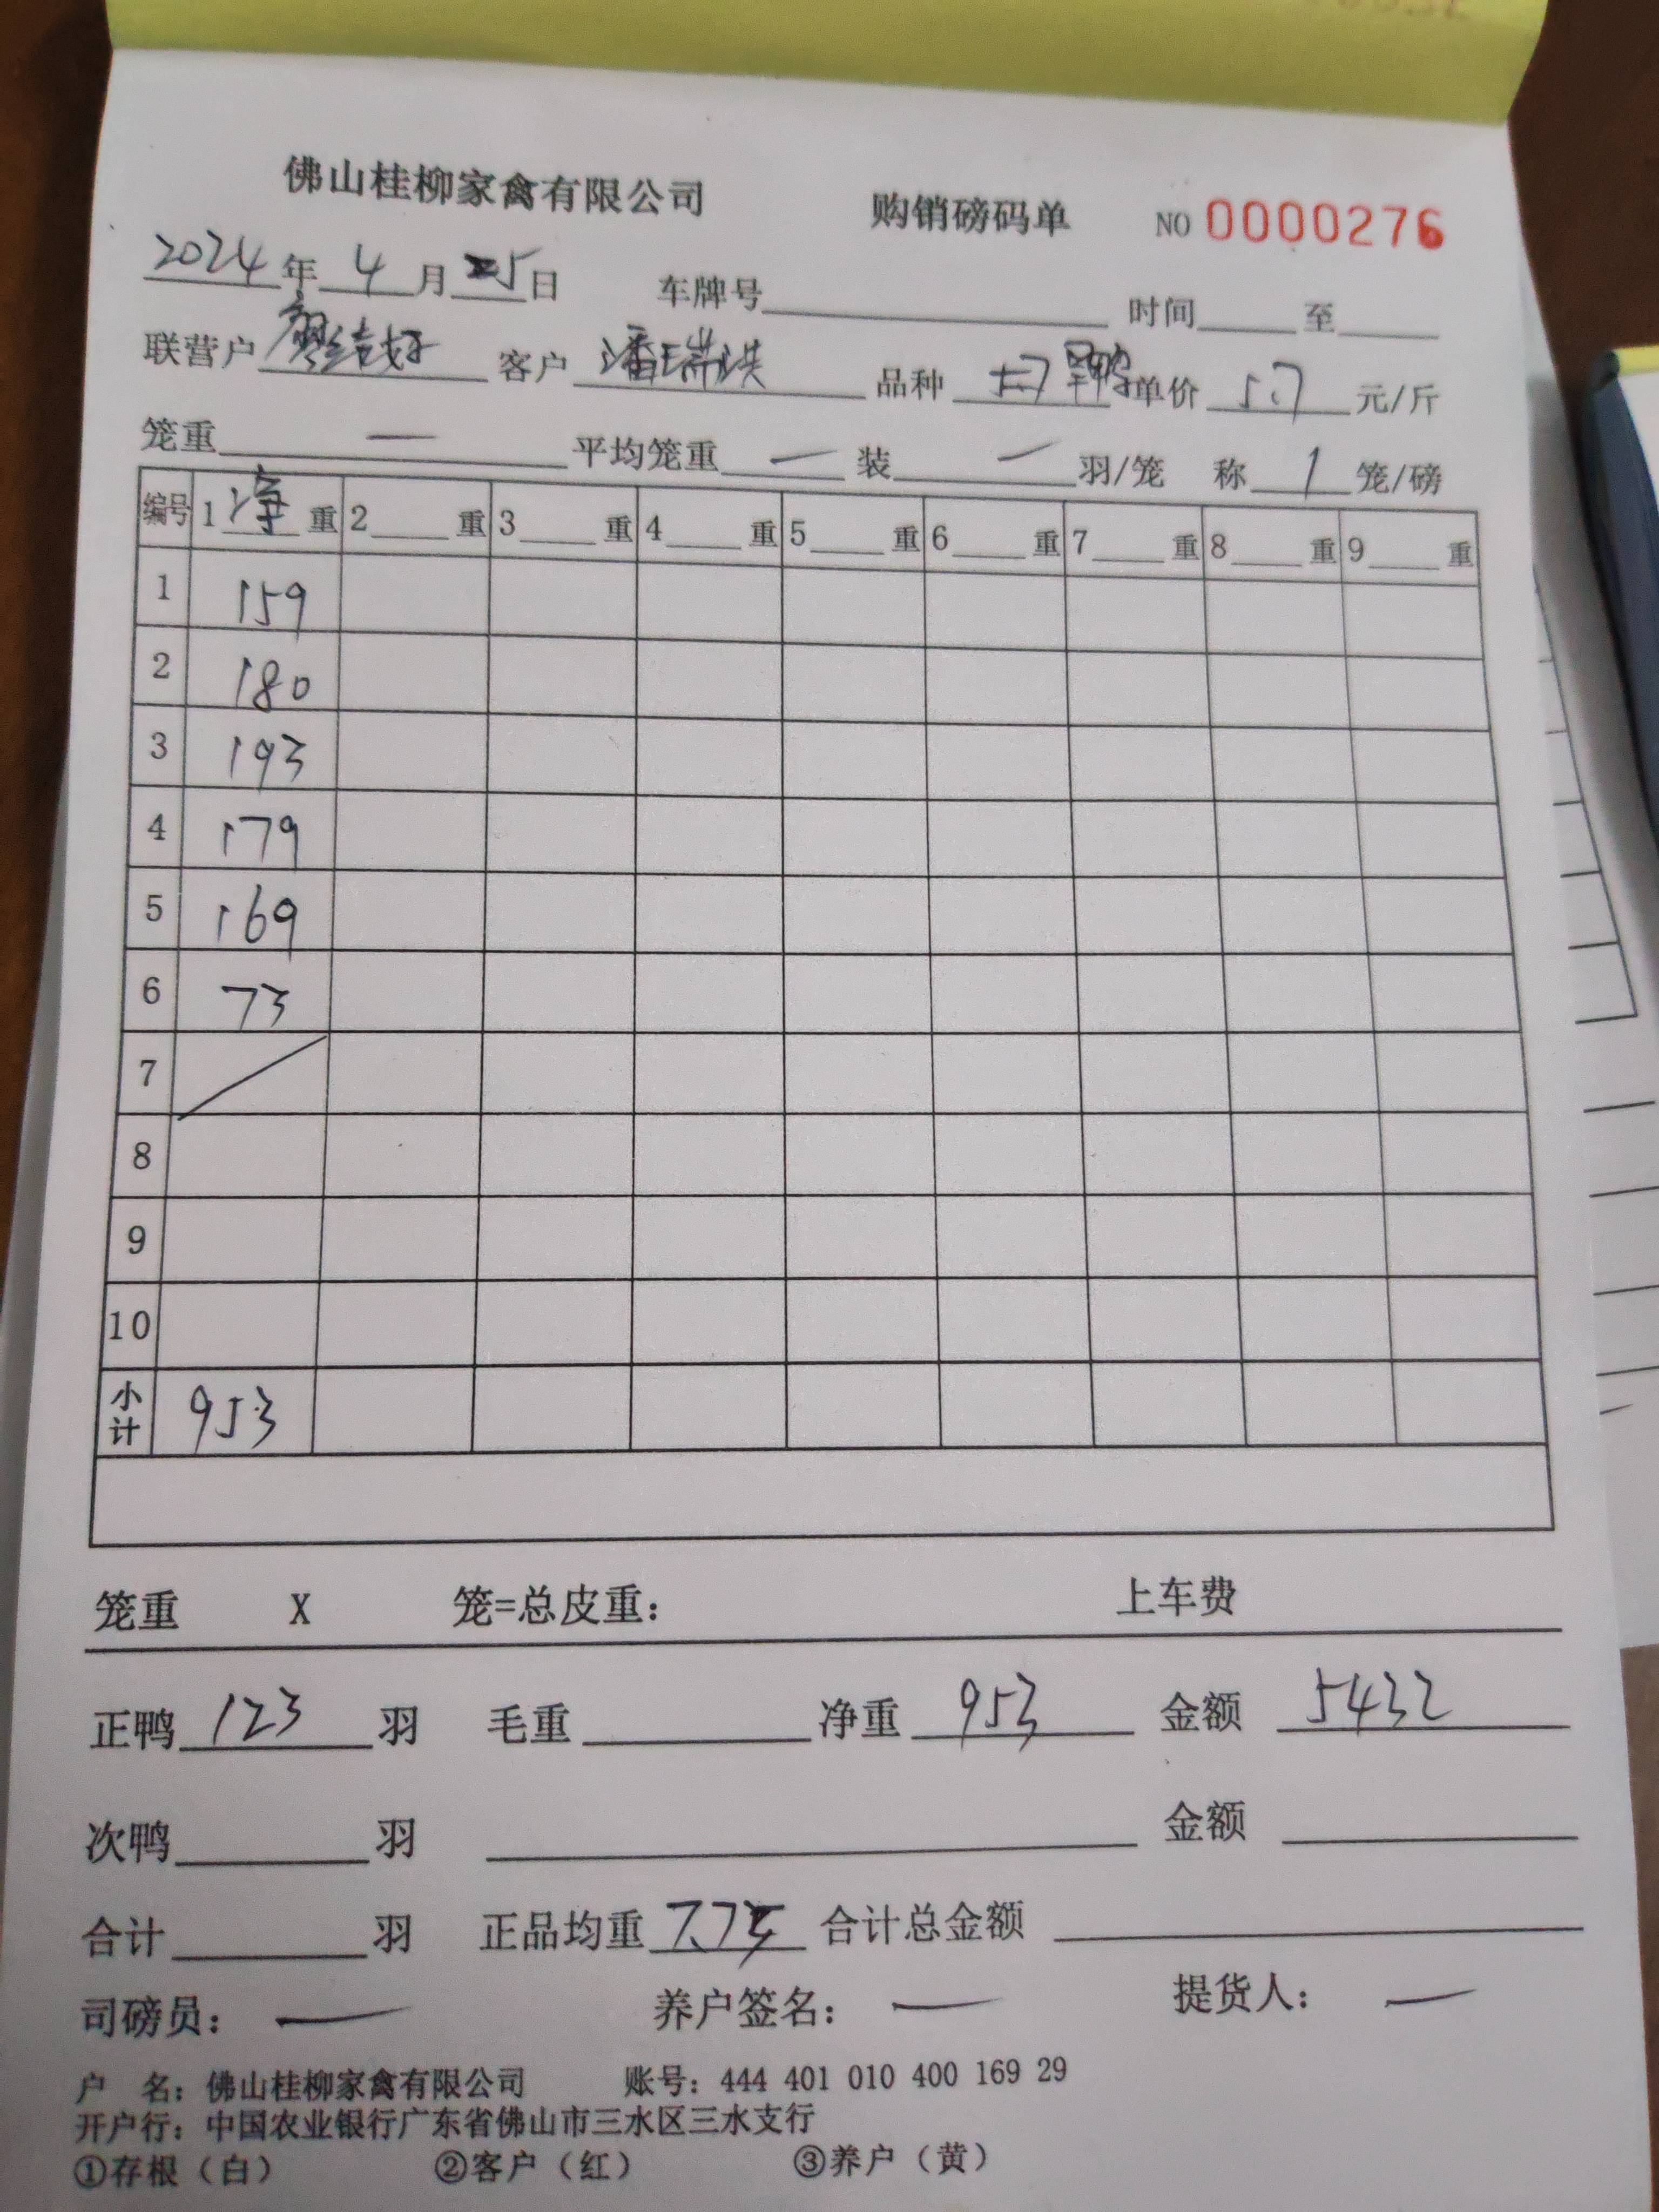 佛山桂柳家禽有限公司 购销磅码单 NO 0000276
2024年4月25日 车牌号 时间 至
联营户 廖结好 客户 潘瑞洪 品种 单价 5.7 元/斤
笼重 — 平均笼重 — 装 — 羽/笼 称 1 笼/磅
编号 1 净 重 2 重 3 重 4 重 5 重 6 重 7 重 8 重 9 重
1 159
2 180
3 193
4 179
5 169
6 73
7 /
8
9
10
小计 953
笼重 X 笼=总皮重: 上车费
正鸭 123 羽 毛重 净重 953 金额 5432
次鸭 羽 金额
合计 羽 正品均重 7.75 合计总金额
司磅员: — 养户签名: — 提货人: —
户 名: 佛山桂柳家禽有限公司 账号: 444 401 010 400 169 29
开户行: 中国农业银行广东省佛山市三水区三水支行
①存根（白） ②客户（红） ③养户（黄）